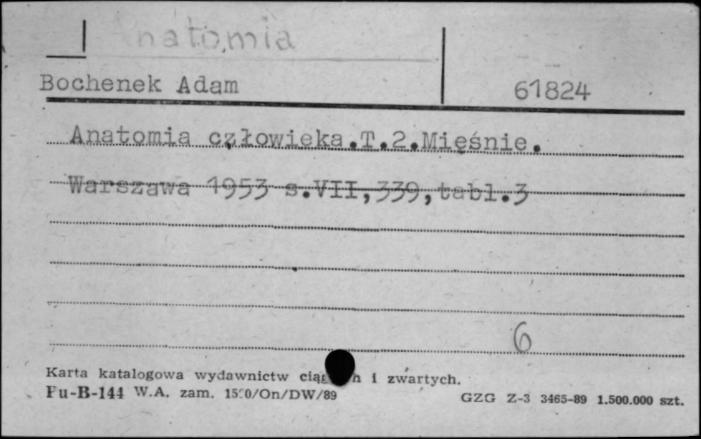 Anatomia
Bochenek Adam 61824
Anatomia człowieka.T.2.Mięśnie.
Warszawa 1953 s.VII,339,tabl.3
6
Karta katalogowa wydawnictw i zwartych.
Pu-B-144 W.A. zam. GZG Z-3 3465-89 1.500.000 szt.